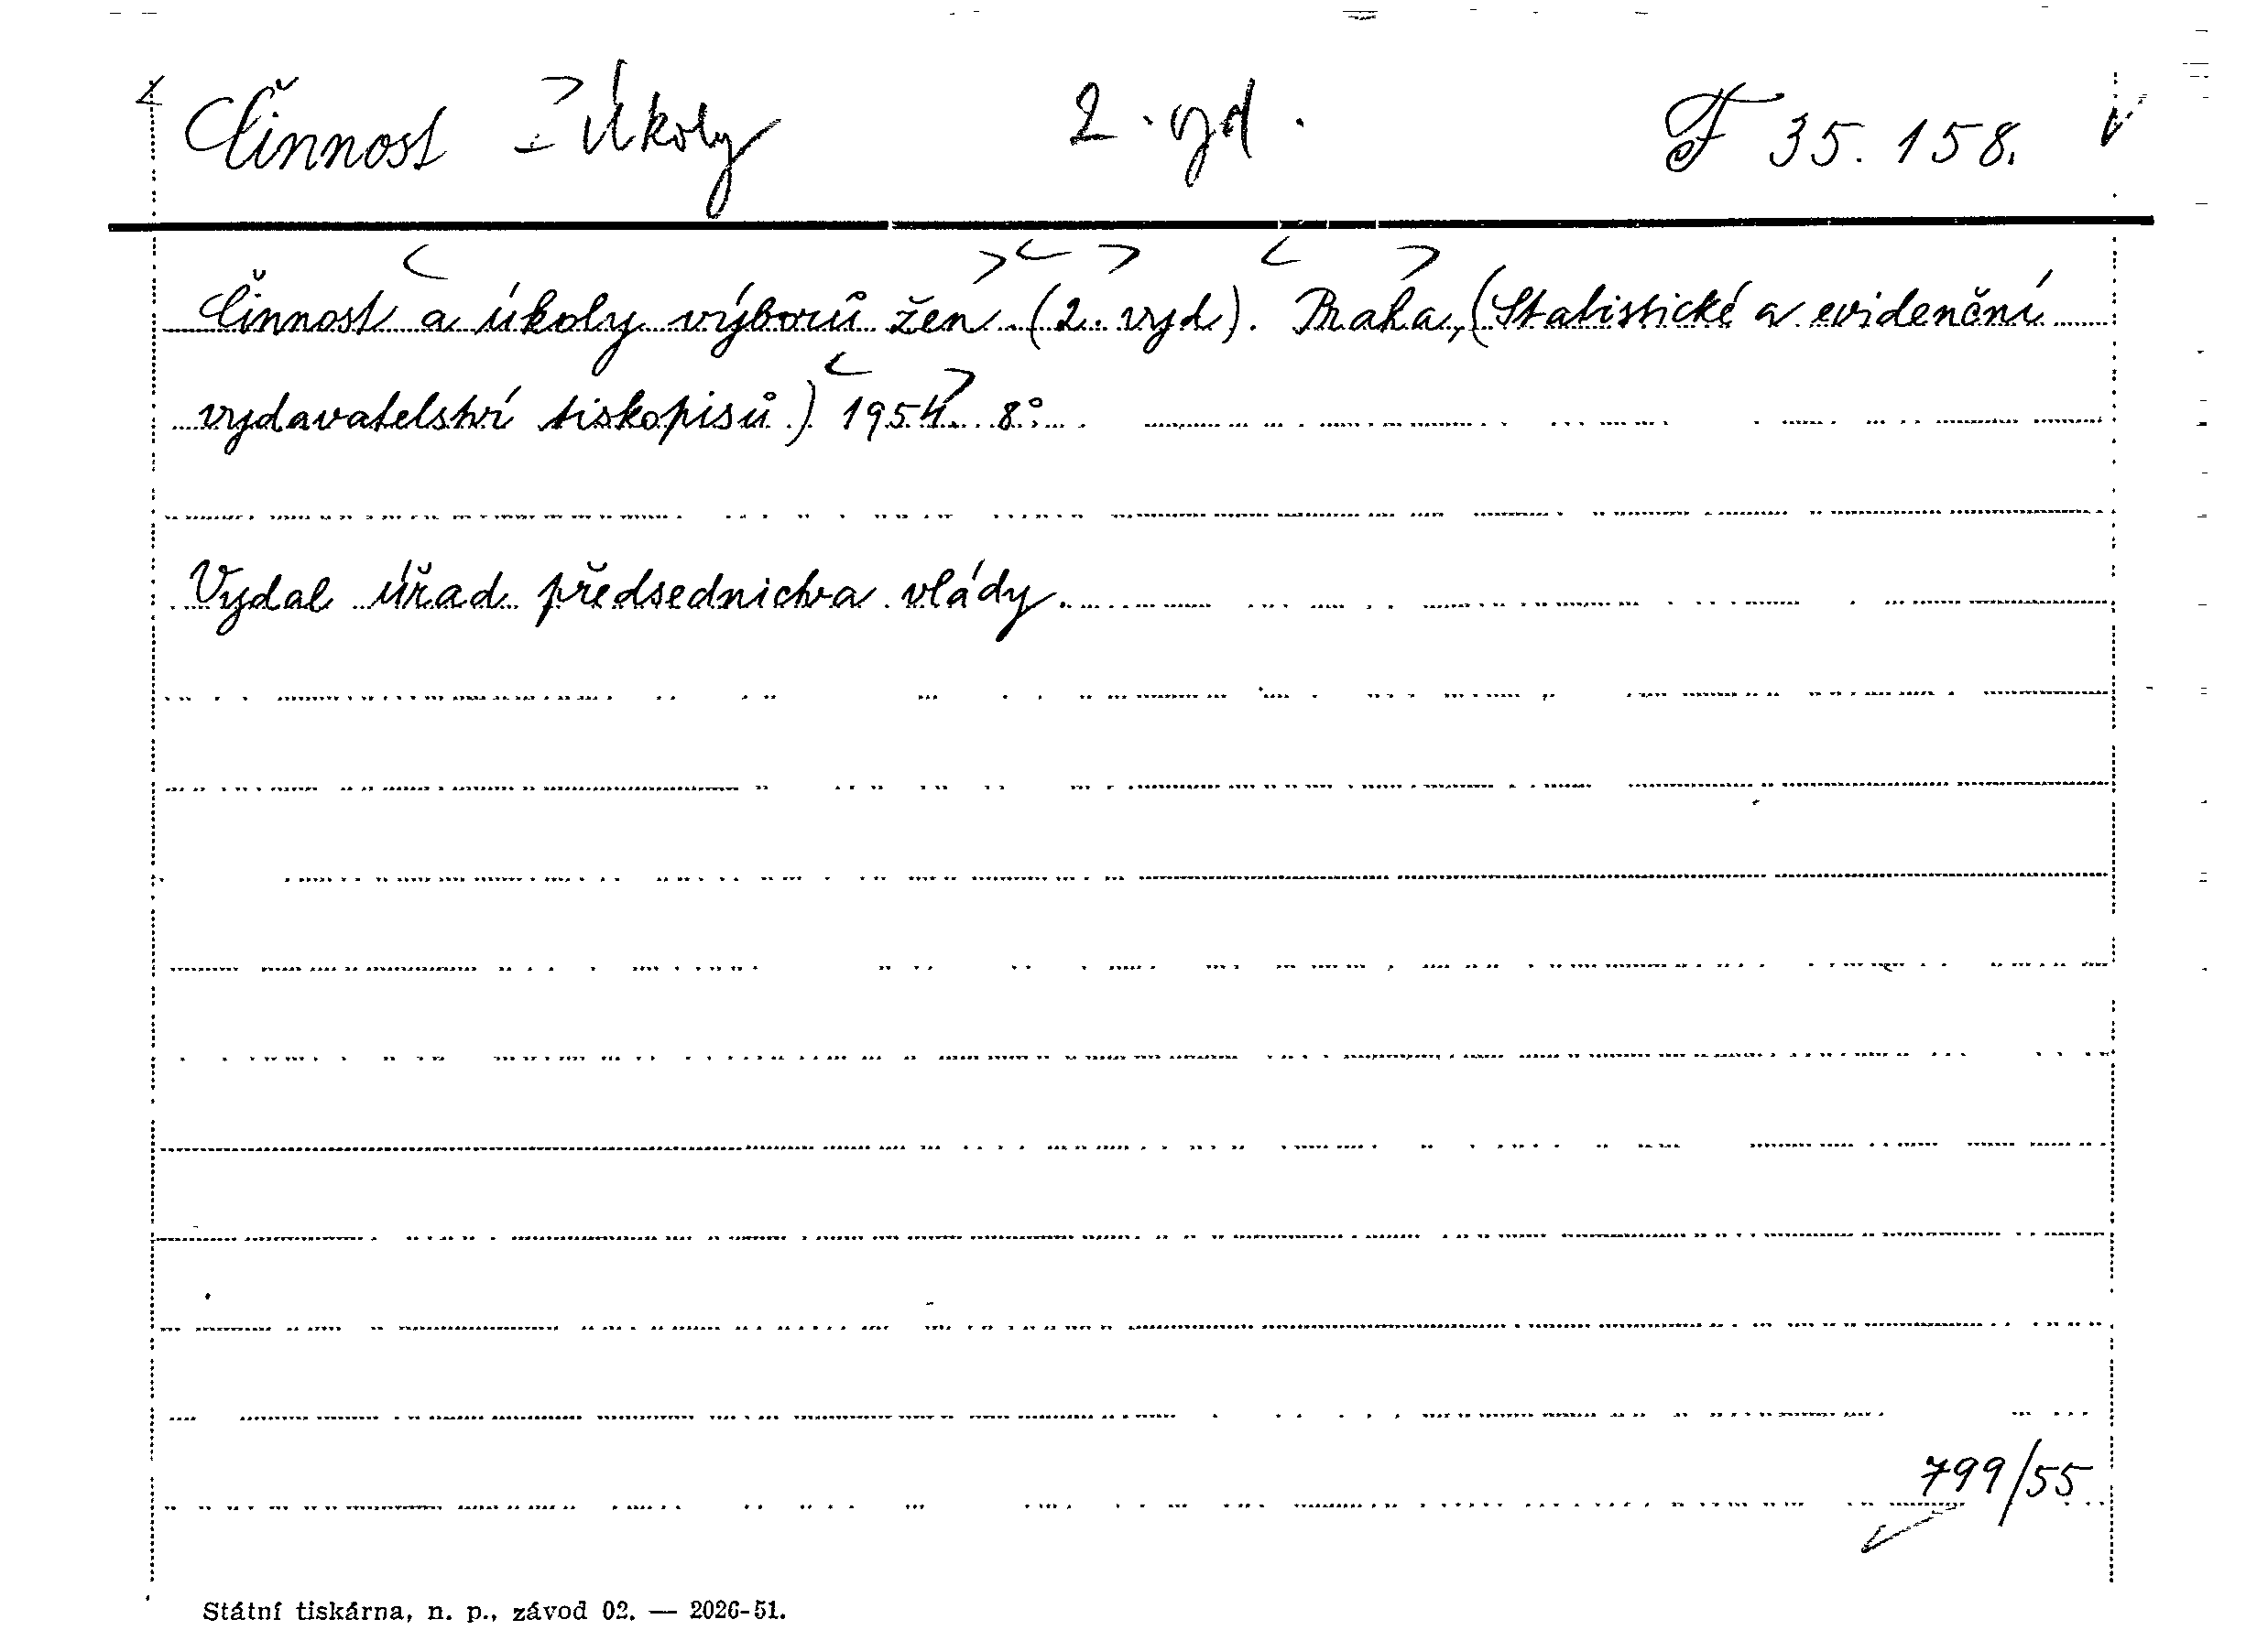 Činnost - Úkoly 2. vyd. F 35.158.
Činnost a úkoly výborů žen. (2. vyd). Praha, (Statistické a evidenční
vydavatelství tiskopisů) 1954. 8°.
Vydal úřad předsednictva vlády.
799/55
Státní tiskárna, n. p., závod 02. — 2026-51.